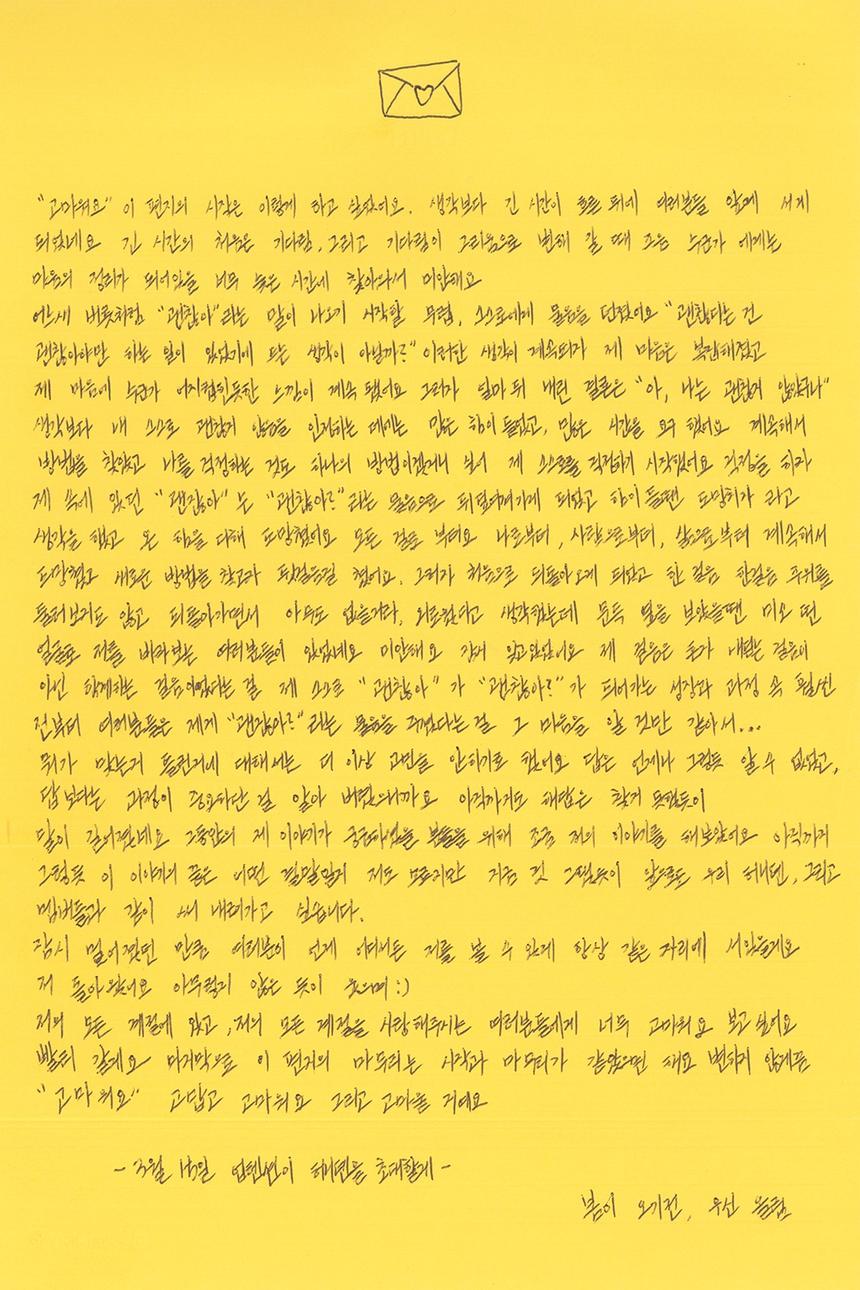 "고마워요" 이 편지의 시작은 이렇게 하고 싶었어요. 생각보다 긴 시간이 흐른 뒤에 여러분들 앞에 서게
되었네요 긴 시간의 처음은 기다림, 그리고 기다림이 그리움으로 변해 갈 때 모든 누군가 에게는
마음의 정리가 되어있을 너무 늦은 시간에 찾아와서 미안해요
어느새 버릇처럼 "괜찮아"라는 말이 나오기 시작할 무렵, 스스로에게 물음을 던졌어요 "괜찮다는 건
괜찮아야만 하는 일이 있었기에 드는 생각이 아닐까?" 이러한 생각이 계속되자 제 마음은 복잡해졌고
제 마음에 누군가 어지럽힌듯한 느낌이 계속 됐어요 그러자 얼마 뒤 내린 결론은 "아, 나는 괜찮지 않았구나"
생각보다 내 스스로 괜찮지 않음을 인지하는 데에는 많은 힘이 들었고, 많은 시간을 요구 했어요 계속해서
방법을 찾았고 나를 걱정하는 것도 하나의 방법이겠거니 싶어 제 스스로를 걱정하기 시작했어요 걱정을 하자
제 속에 있던 "괜찮아" 는 "괜찮아?"라는 물음으로 뒤덮여져가게 되었고 힘이 들땐 도망치자 라고
생각을 했고 온 힘을 다해 도망쳤어요 모든 걸로 부터요 나로부터, 사람으로부터, 삶으로부터 계속해서
도망쳤고 새로운 방법을 찾고자 뒷걸음질 쳤어요. 그러자 처음으로 되돌아오게 되었고 한 걸음 한걸음 주위를
둘러보지도 않고 되돌아가면서 아무도 없을거라, 외로웠다고 생각했는데 문득 옆을 보았을땐 미소 띤
얼굴로 저를 바라보는 여러분들이 있었네요 미안해요 잠시 잊고있었어요 제 걸음은 혼자 내딛는 걸음이
아닌 함께하는 걸음이였다는 걸 제 스스로 "괜찮아" 가 "괜찮아?"가 되어가는 성장과 과정 속 훨씬
전부터 여러분들은 제게 "괜찮아?" 라는 물음을 주셨다는걸 그 마음을 알 것만 같아서...
뭐가 맞는지 틀린지에 대해서는 더 이상 고민을 안하기로 했어요 답은 언제나 그렇듯 알 수 없었고,
답보다는 과정이 중요하단 걸 알아 버렸으니까요 아직까지도 해답은 찾지 못했듯이
말이 길어졌네요 그동안의 제 이야기가 궁금하셨을 분들을 위해 조금 저의 이야기를 해보았어요 아직까지
그렇듯 이 이야기의 끝은 어떤 결말일지 저도 모르지만 지금 껏 그랬듯이 앞으로도 우리 허니텐, 그리고
멤버들과 같이 써 내려가고 싶습니다.
잠시 멀어졌던 만큼 여러분이 언제 어디서든 저를 볼 수 있게 항상 같은 자리에 서있을게요
저 돌아왔어요 아무렇지 않은 듯이 웃으며 :)
저의 모든 계절에 있고, 저의 모든 계절을 사랑해주시는 여러분들에게 너무 고마워요 보고싶어요
빨리 갈게요 마지막으로 이 편지의 마무리는 시작과 마무리가 같았으면 해요 변하지 않게끔
"고마워요" 고맙고 고마워요 그리고 고마울 거예요
- 3월 15일 업텐션이 허니텐을 초대할게 -
봄이 오기전, 우신 올림